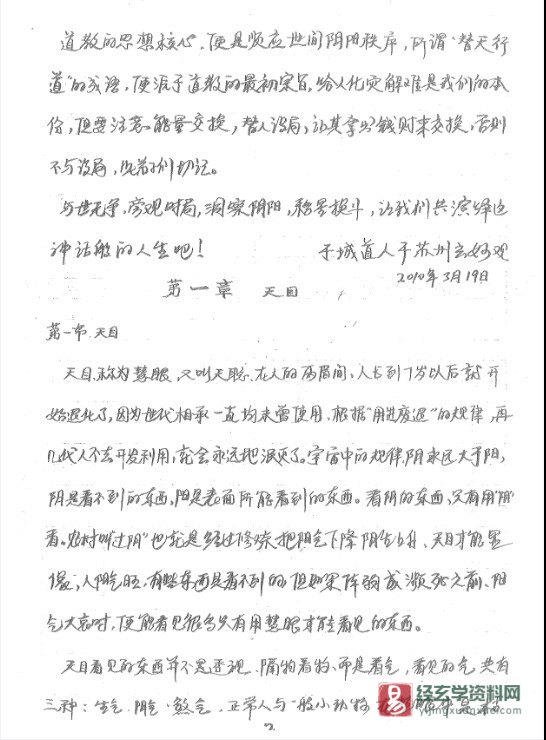 道教的思想核心,便是顺应世间阴阳秩序,所谓“替天行
道”的成语,便源于道教的最初宗旨。给人化灾解难是我们的本
份,但要注意能量交换,替人设局,让其拿出钱财来交换,否则
不与设局,此者们切记。
与世无争,旁观时局,洞察阴阳,移星换斗,让我们共演绎这
神话般的人生吧!
于城道人于苏州玄妙观
2010年3月19日
第一章 天目
第一节 天目
天目,称为慧眼,又叫天聪,在人的两眉间,人长到7岁以后就开
始退化了,因为世代相承一直均未曾使用,根据“用进废退”的规律,再
几代人不去开发利用,就会永远地泯灭了。宇宙中的规律,阴永远大于阳,
阴是看不到的东西,阳是表面所能看到的东西。看阴的东西,只有用“阴”
看。农村叫“过阴”也就是经过修炼,把阳气下降,阴气上升,天目才能显
像,人阳气旺,有些东西是看不到的,但如果阵弱或濒死之前,阳
气大衰时,便能看见很多只有用慧眼才能看见的东西。
天目看见的东西并不是透视,隔物看物,而是看气,看见的气共有
三种:生气、阴气、煞气。正常人与一般小动物
易 经玄学资料网
2